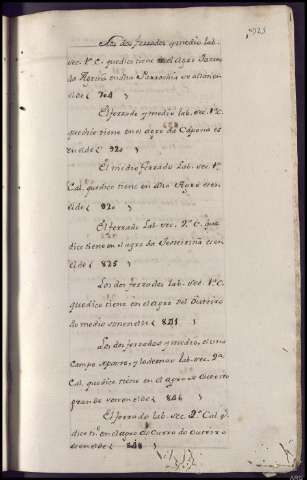 Los dos ferrados y medio lab.
sec. 1ª C. que dice tiene en el Agro
de Agriña en dha Parrochia se allan en
el de ( 704 )
El ferrado y medio lab. sec. 1ª C.
que dice tiene en el agro da Capona es
en el de ( 920 )
El medio ferrado Lab. sec. 1ª
Cal. que dice tiene en dho Agro es en
el de ( 920 )
El ferrado Lab. sec. 2ª C. que
dice tiene en el agro da es en
el de ( 825 )
Los dos ferrados lab. sec. 1ª C.
que dice tiene en el agro del Outeiro
do medio son en el de ( 841 )
Los dos ferrados y medio, el uno
Campo y lo demas lab. sec. 2ª
Cal. que dice tiene en el agro do Outeiro
grande son en el de ( 846 )
El ferrado lab. sec. 2ª Cal. q.
dice tiene en el agro do Curro do Outeiro
es en el de ( 848 )